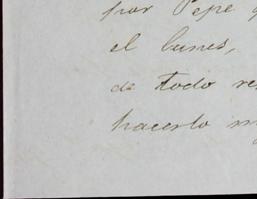 por Pepe
el lunes,
de todo
hacerlo